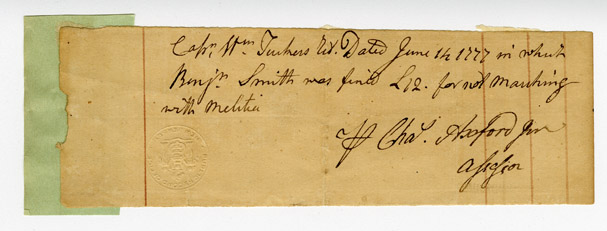 Capn. Wm Tuckers Rt. Dated June 14 1777 in which
Benjn Smith was find £12. for not marching
with melitia
Chas. Axford Jun
assessor